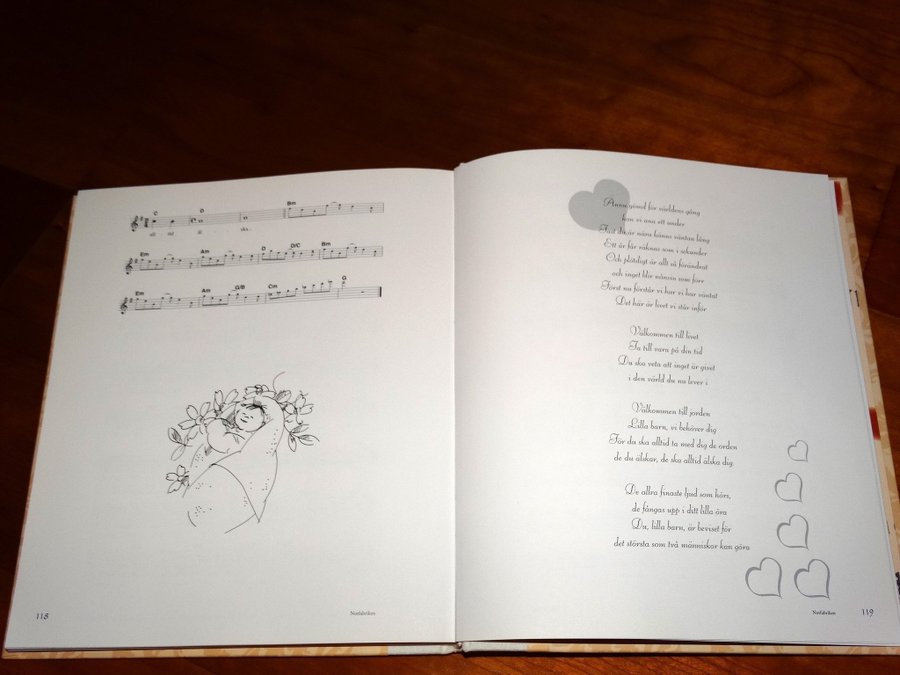 C D Bm
all - tid äl - ska.
Em Am D D/C Bm
Em Am G/B Cm G
118
Notfabriken
Ännu gömd för världens gång
kan vi ana ett under
Fast du är nära känns väntan lång
Ett år får räknas som i sekunder
Och plötsligt är allt så förändrat
och inget blir nånsin som förr
Först nu förstår vi hur vi har väntat
Det här är livet vi står inför
Välkommen till livet
Ta till vara på din tid
Du ska veta att inget är givet
i den värld du nu lever i
Välkommen till jorden
Lilla barn, vi behöver dig
För du ska alltid ta med dig de orden
de du älskar, de ska alltid älska dig.
De allra finaste ljud som hörs,
de fångas upp i ditt lilla öra
Du, lilla barn, är beviset för
det största som två människor kan göra
Notfabriken
119